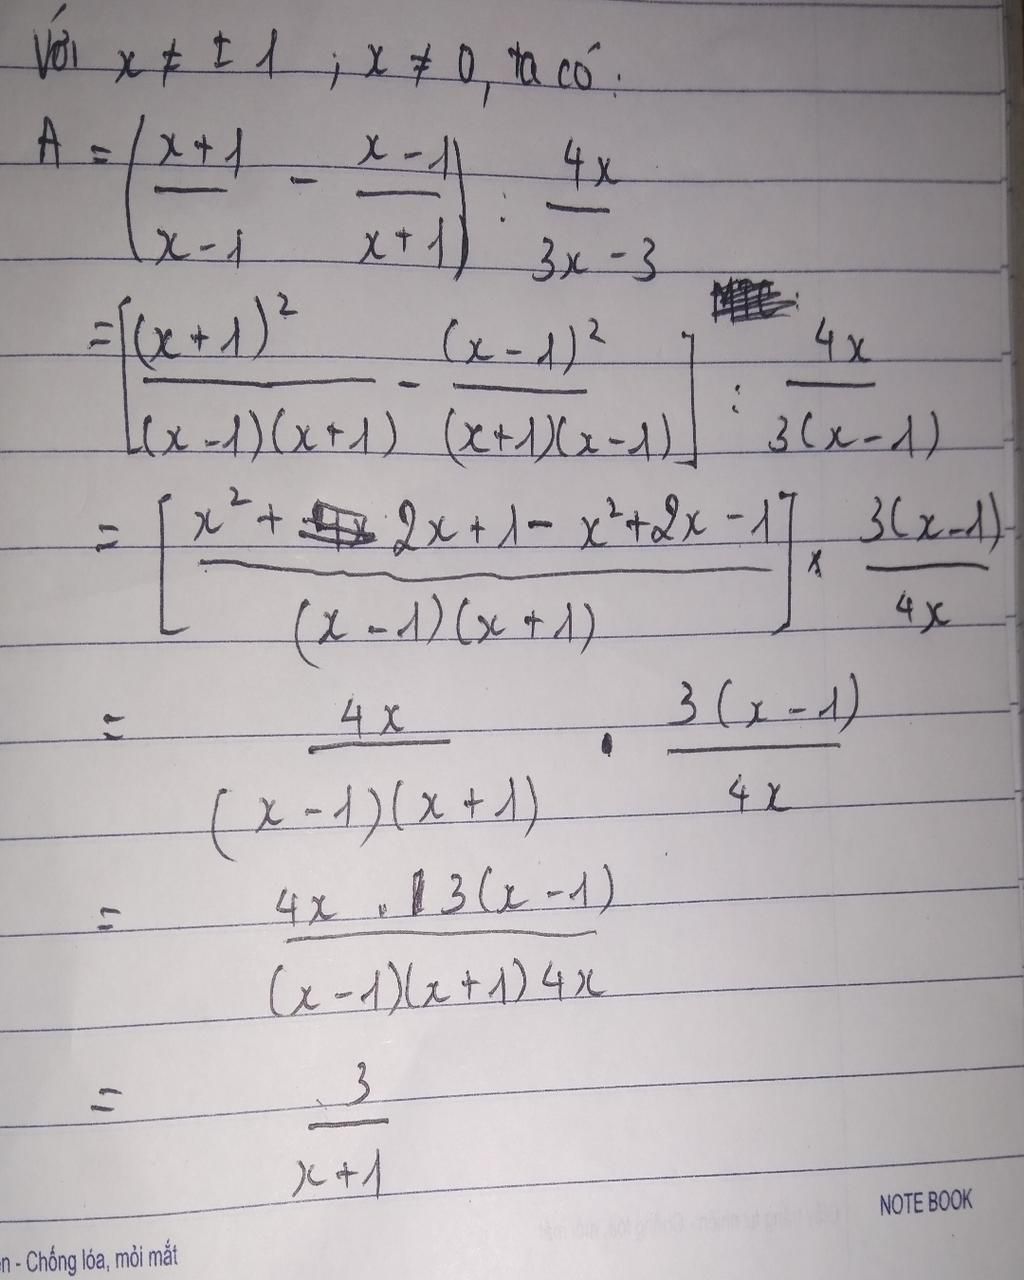 Với x ≠ ± 1 ; x ≠ 0, ta có :
A = (x+1/x-1 - x-1/x+1) : 4x/3x-3
= [(x+1)²/(x-1)(x+1) - (x-1)²/(x+1)(x-1)] : 4x/3(x-1)
= [x²+2x+1-x²+2x-1/(x-1)(x+1)] × 3(x-1)/4x
= 4x/(x-1)(x+1) . 3(x-1)/4x
= 4x . 3(x-1)/(x-1)(x+1)4x
= 3/x+1
NOTE BOOK
- Chống lóa, mỏi mắt